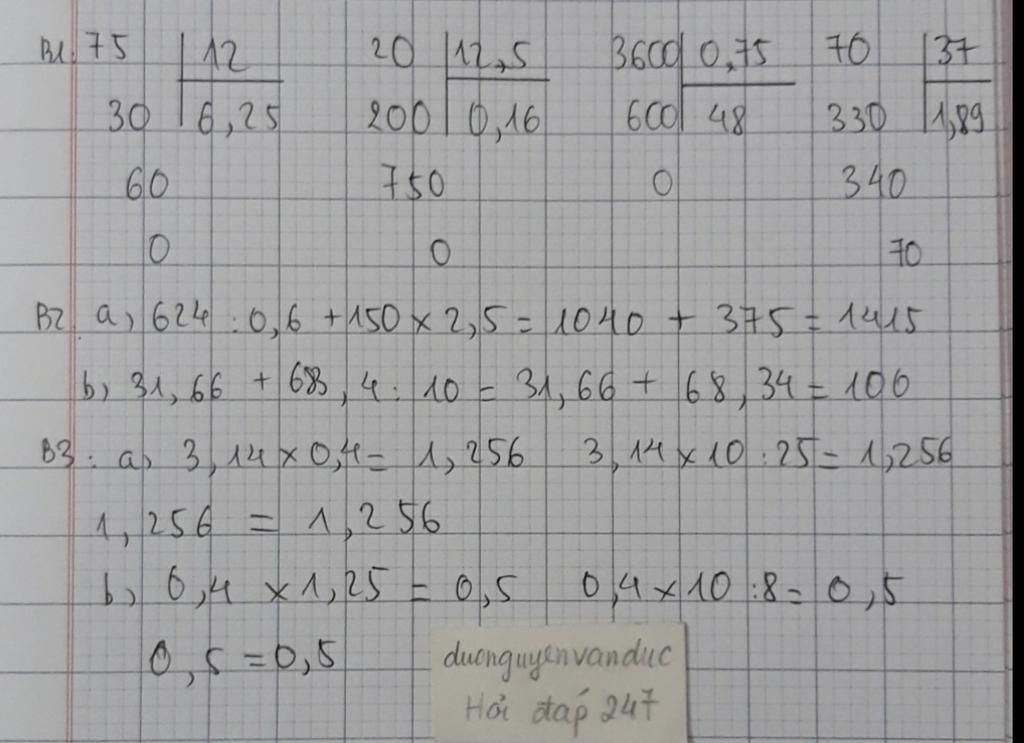 B1. 75 12 20 12,5 3600 0,75 70 37
30 6,25 200 0,16 600 48 330 1,89
60 750 0 340
0 0 70
B2. a, 624 : 0,6 + 150 × 2,5 = 1040 + 375 = 1415
b, 31,66 + 683,4 : 10 = 31,66 + 68,34 = 100
B3: a, 3,14 × 0,4 = 1,256 3,14 × 10 : 25 = 1,256
1,256 = 1,256
b, 0,4 × 1,25 = 0,5 0,4 × 10 : 8 = 0,5
0,5 = 0,5
duonguyenvanduc
Hỏi đáp 247